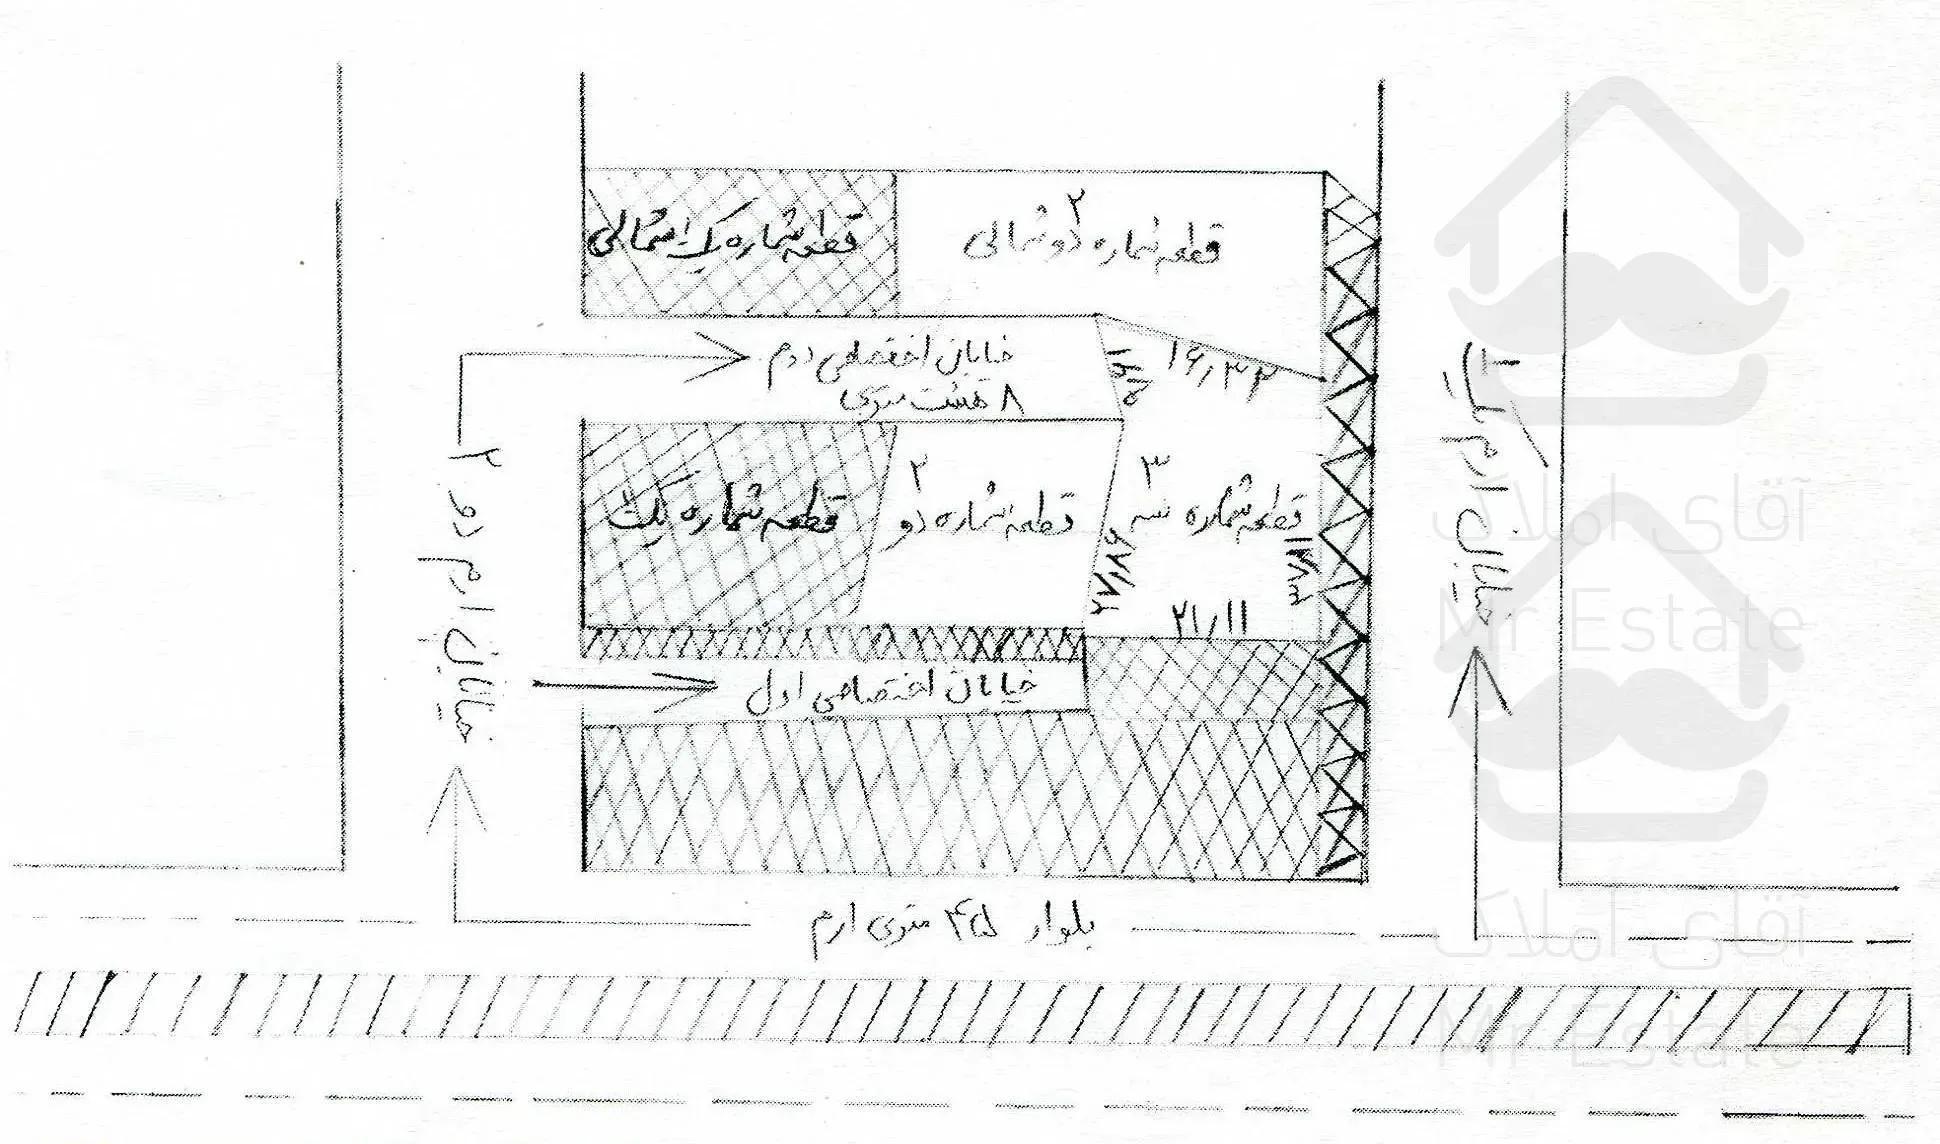 قطعه شماره یک شمالی
۲
قطعه شماره دو شمالی
خیابان اختصاصی دوم
۸ هشت متری
۱۶٫۳۳
خیابان ارم یک ۱
خیابان ارم دو ۲
قطعه شماره یک
۲
قطعه شماره دو
۳
قطعه شماره سه
۲۷٫۸۶
۲۱٫۱۱
خیابان اختصاصی اول
بلوار ۴۵ متری ارم
آقای املاک
Mr Estate
آقای املاک
Mr Estate